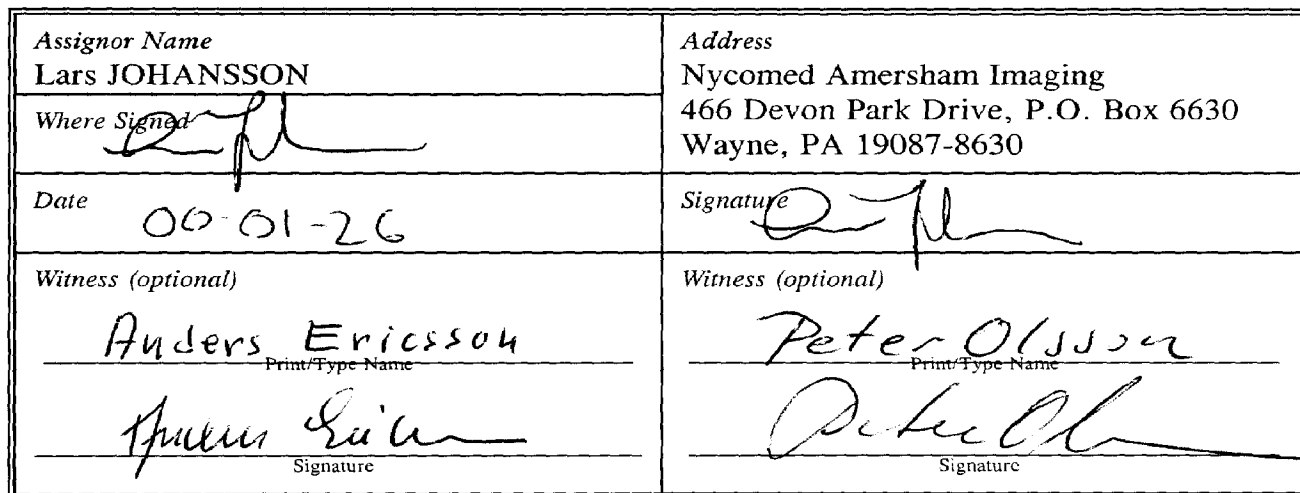 Assignor Name
Lars JOHANSSON
Address
Nycomed Amersham Imaging
466 Devon Park Drive, P.O. Box 6630
Wayne, PA 19087-8630
Where Signed
Date
00-01-26
Signature
Witness (optional)
Anders Ericsson
Print/Type Name
Signature
Witness (optional)
Peter Olsson
Print/Type Name
Signature